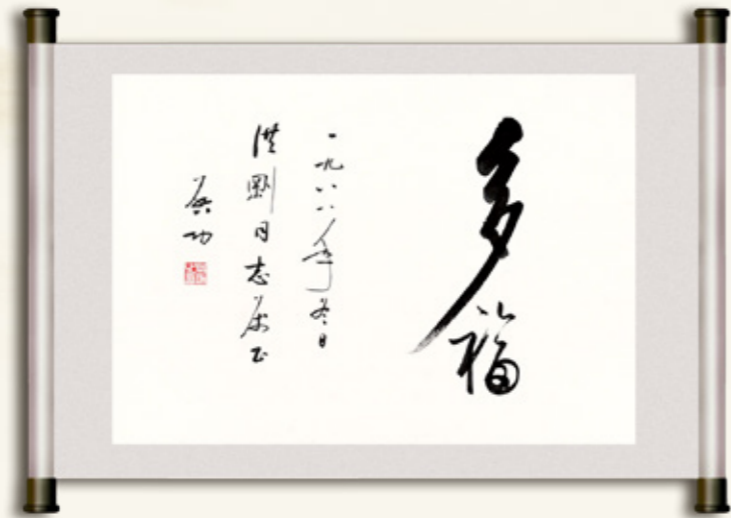 多福
一九八八年冬日
洪剛同志属正
启功